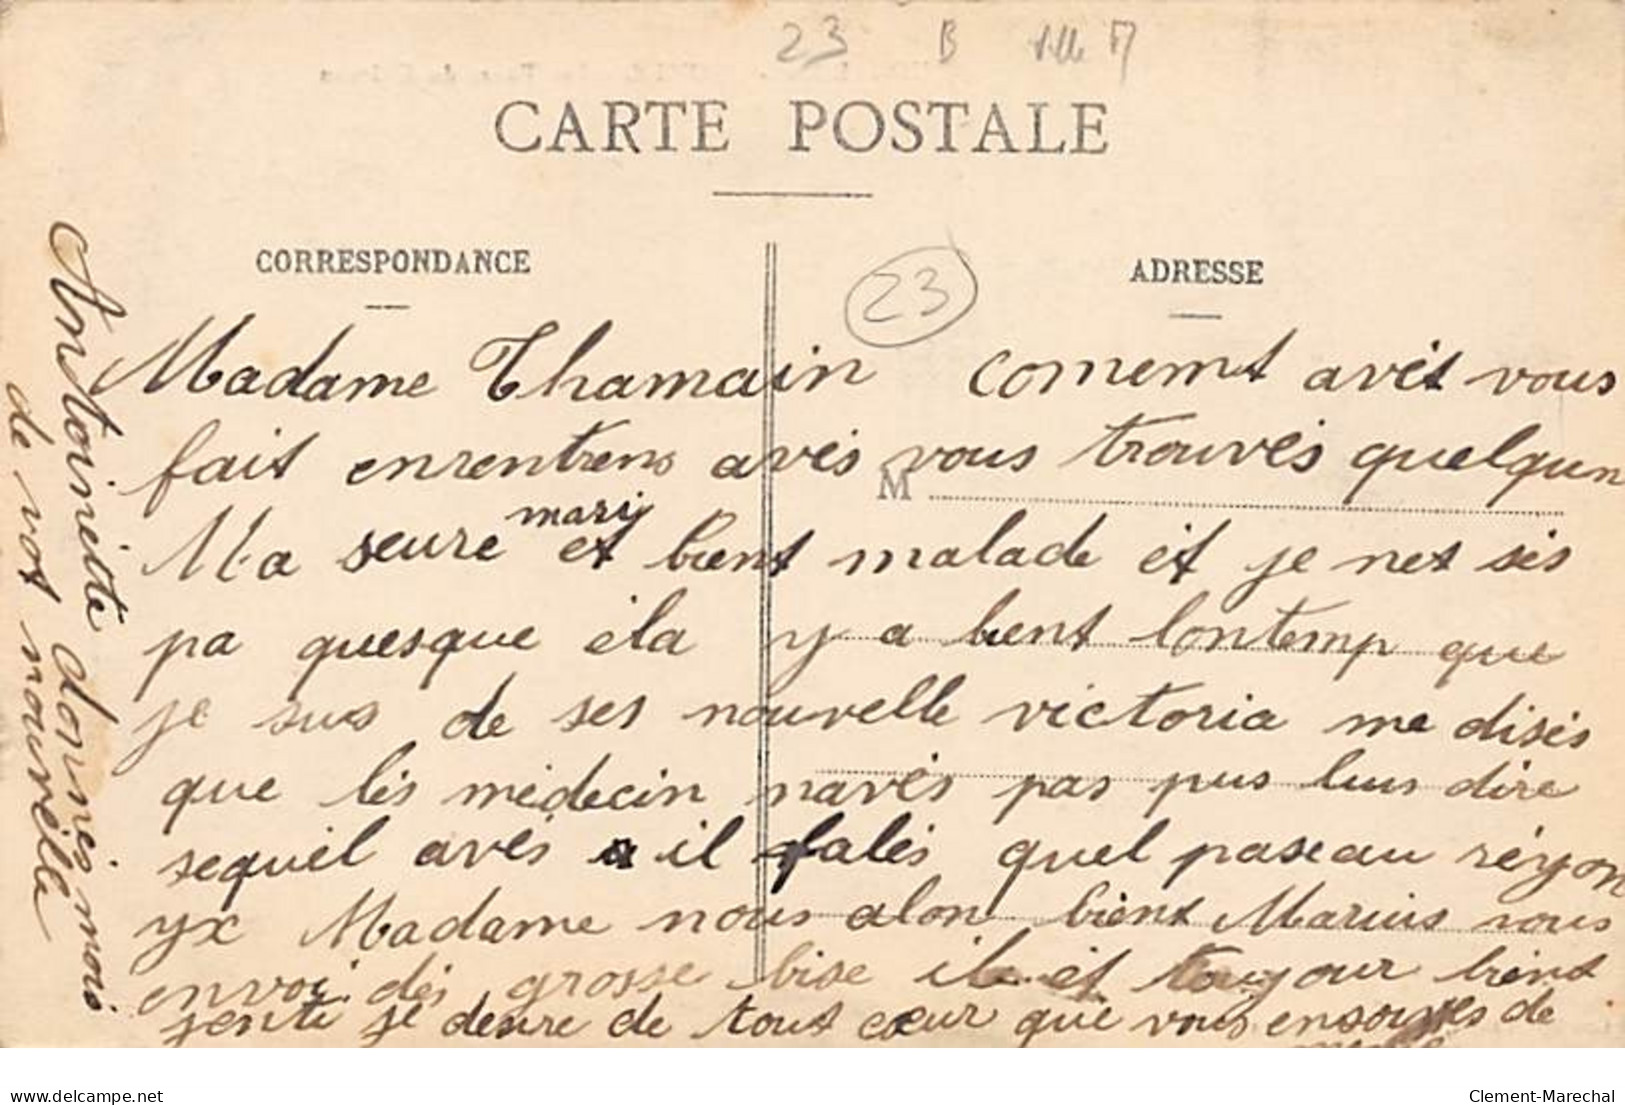 23 B
CARTE POSTALE
CORRESPONDANCE
ADRESSE
23
Madame Thamain coment avét vous
fait enrentrens avés vous trouvés quelqun
M
Ma seure mary et bient malade et je net sés
pa quesque éla y a bient lontemp que
je sus de ses nouvelle victoria me disés
que lés médecin navés pas pus luis dire
sequél avés il falés quel paseau réyon
yx Madame nous alon bient Marius vous
envoi dés grosse bise il et toujour bient
senti je desire de tout cœur que vous ensoiyes de
Antoinette donnés mois
de vos nouvélle
delcampe.net
Clement-Marechal